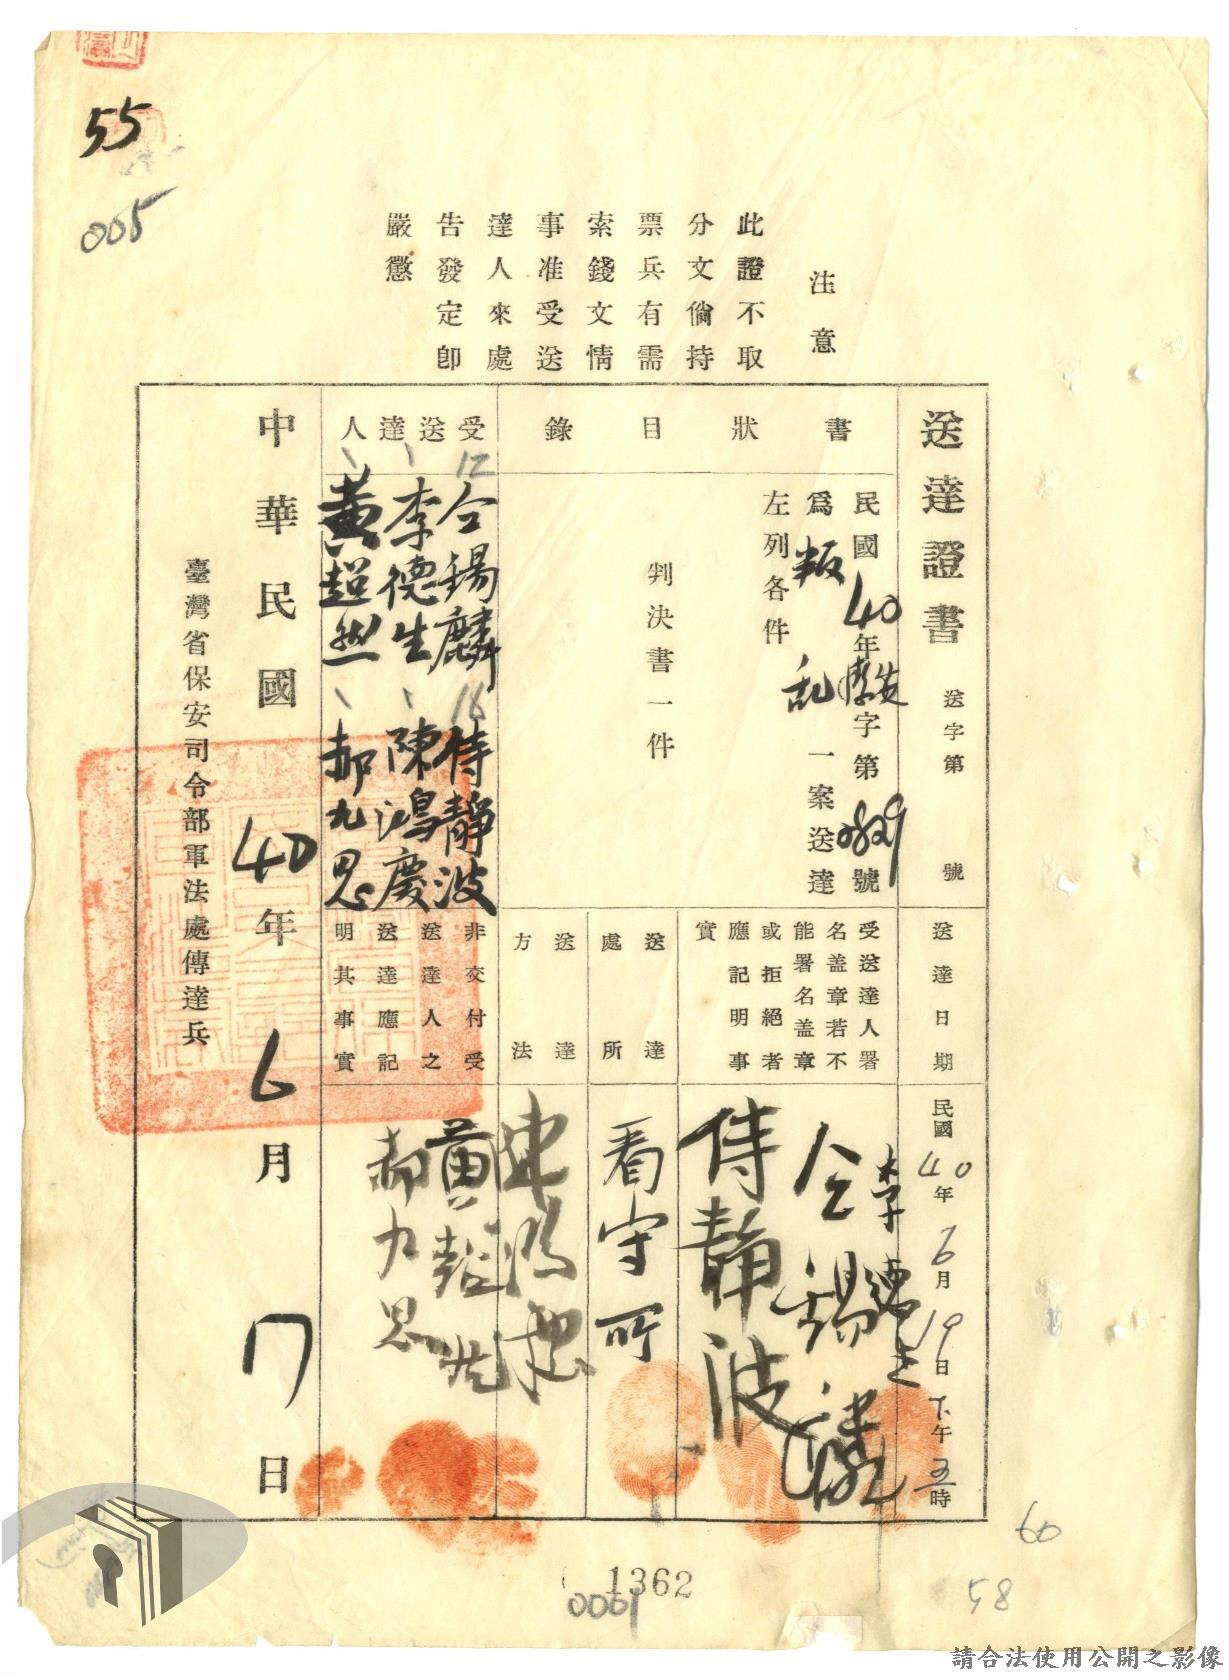 55
005
注意
此證不取
分文倘持
票兵有需
索錢文情
事准受送
達人來處
告發定卽
嚴懲
送達證書 送字第 號
書狀目錄
民國40年 字第0829號
爲叛乱一案送達
左列各件
判決書一件
受送達人
12
仝錫麟
李德生
黃超然
16
侍靜波
陳鴻慶
郝九思
送達日期
民國40年6月19日下午五時
受送達人署
名盖章若不
能署名盖章
或拒絕者
應記明事
實
李德生
仝錫麟
侍靜波
送達處所
看守所
送達方法
非交付受
送達人之
送達應記
明其事實
黃超然
郝九思
中華民國40年6月17日
臺灣省保安司令部軍法處傳達兵
1362
0061
60
58
請合法使用公開之影像